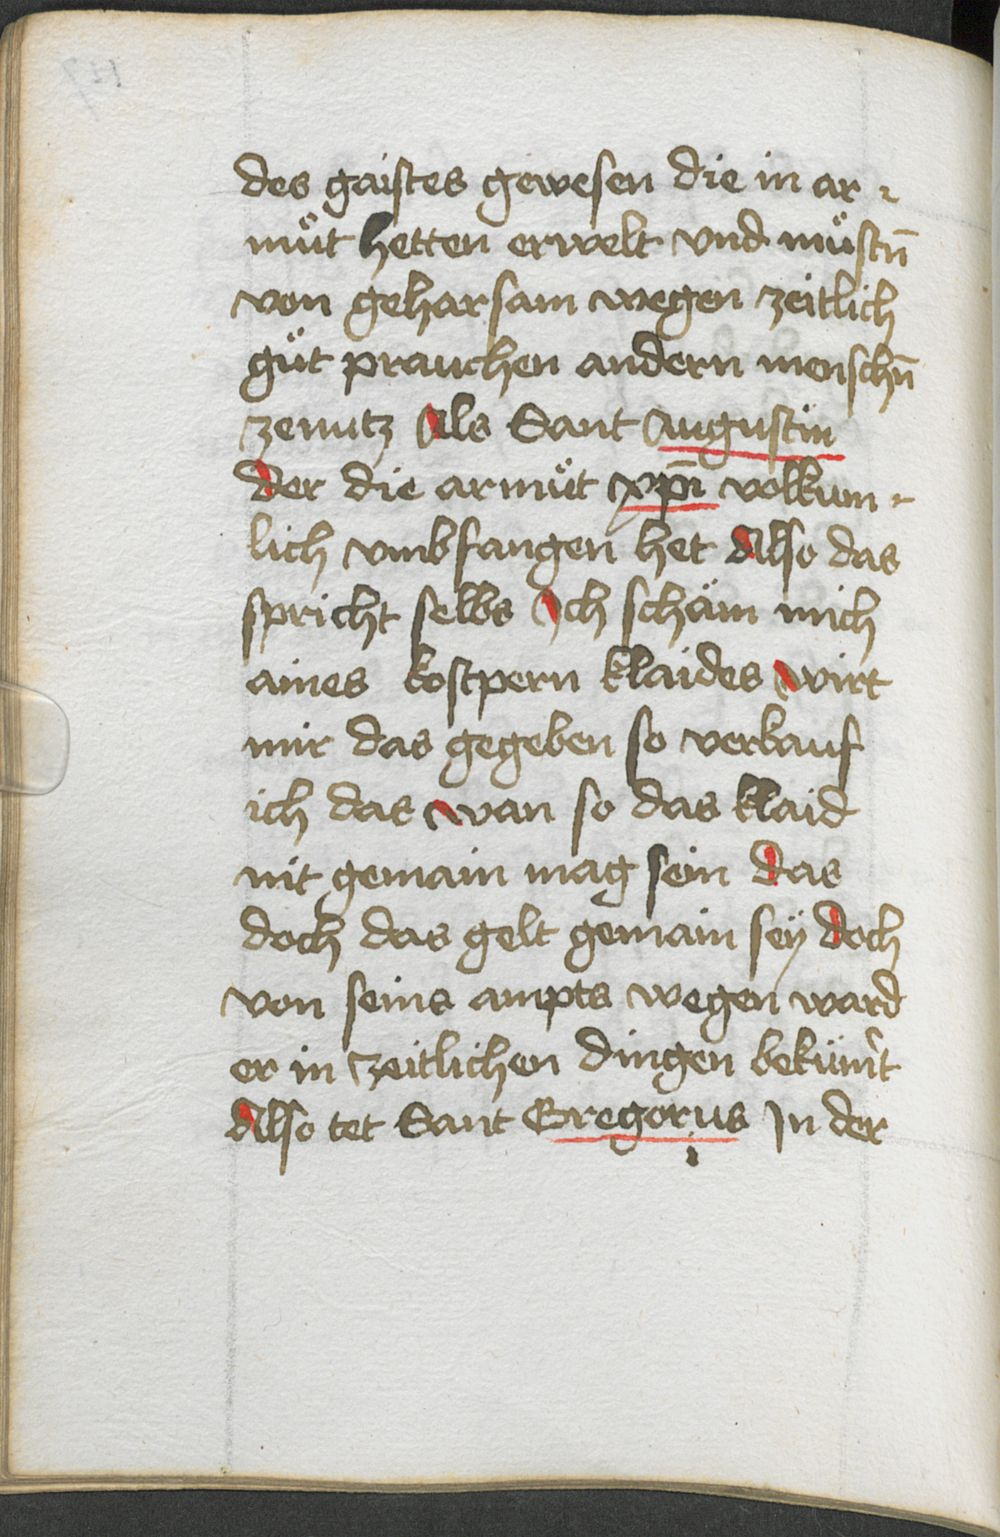 des gaistes gewesen die in ar-
müt hetten erwelt vnd müstn̄
von geharsam wegen zeitlich
güt prauchen andern menschn̄
zenutz Als Sant Augustin
der die armüt xp̄i volkum-
lich vmbfangen het Also das
spricht selbs Ich schäm mich
aines kostpern klaides wirt
mir das gegeben so verkauf
ich das wan so das klaid
nit gemain mag sein das
doch das gelt gemain seÿ doch
von seins ampts wegen ward
er in zeitlichen dingen bekümt
Also tet Sant Gregorius In der